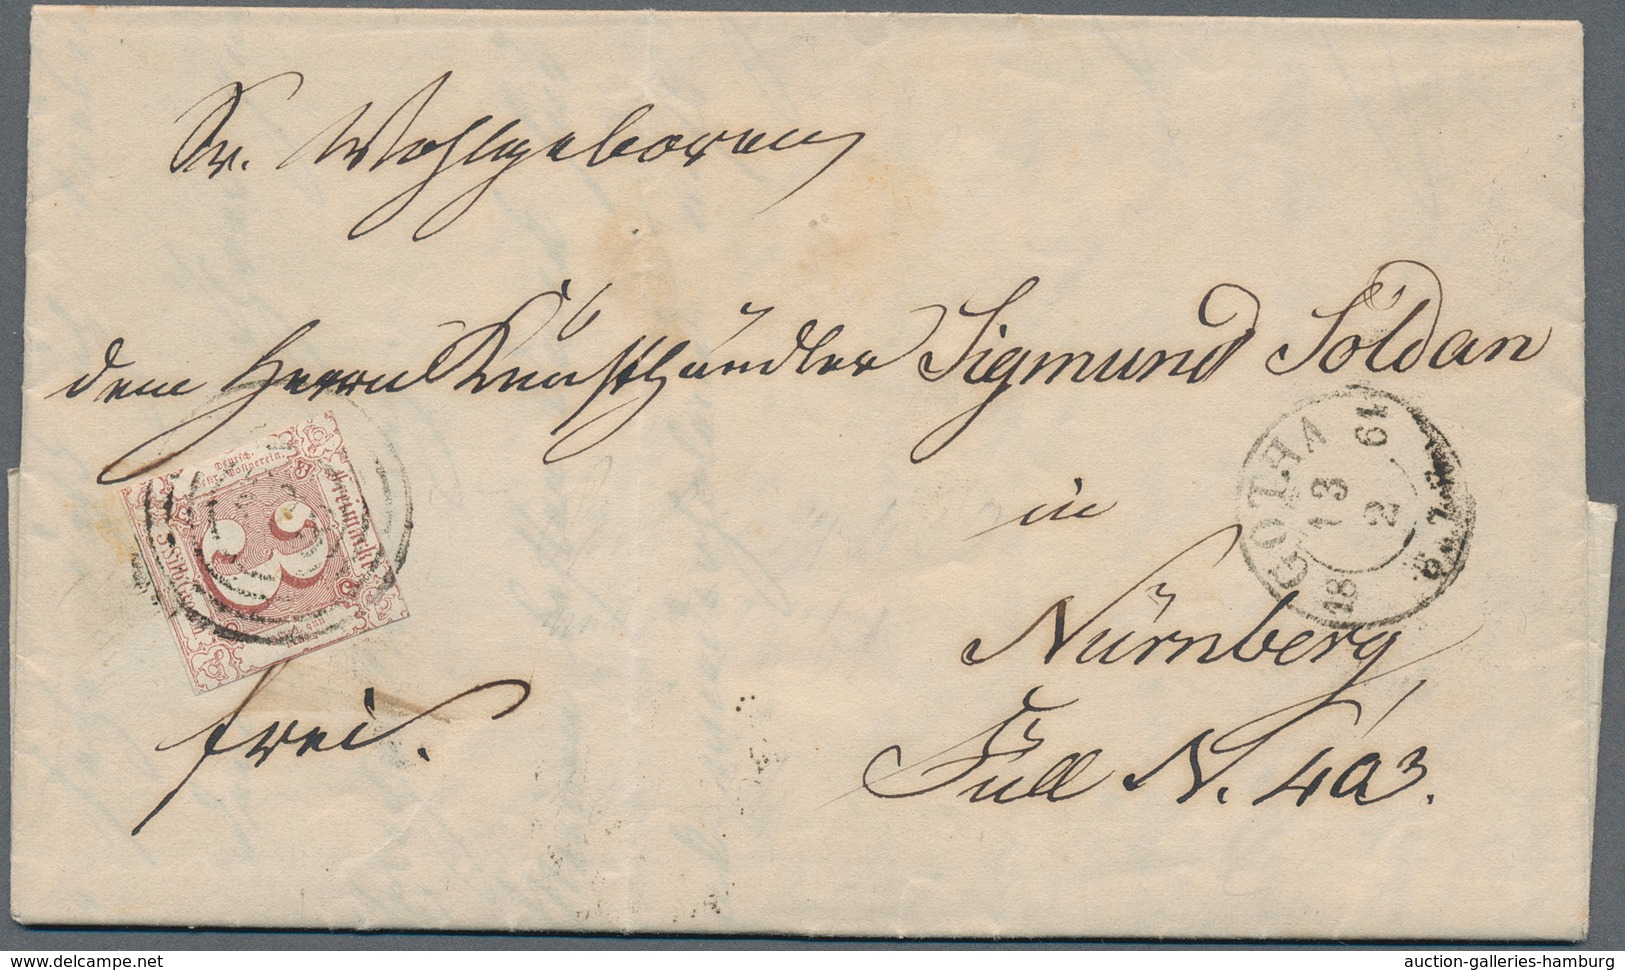 Sr. Wohlgeboren
dem Herrn Kunsthändler Sigmund Soldan
in
Nürnberg
Füll N. 403.
frei.
Deutsch.
Freimarke
3
GOTHA
13 2
18 61
delcampe.net
auction-galleries-hamburg